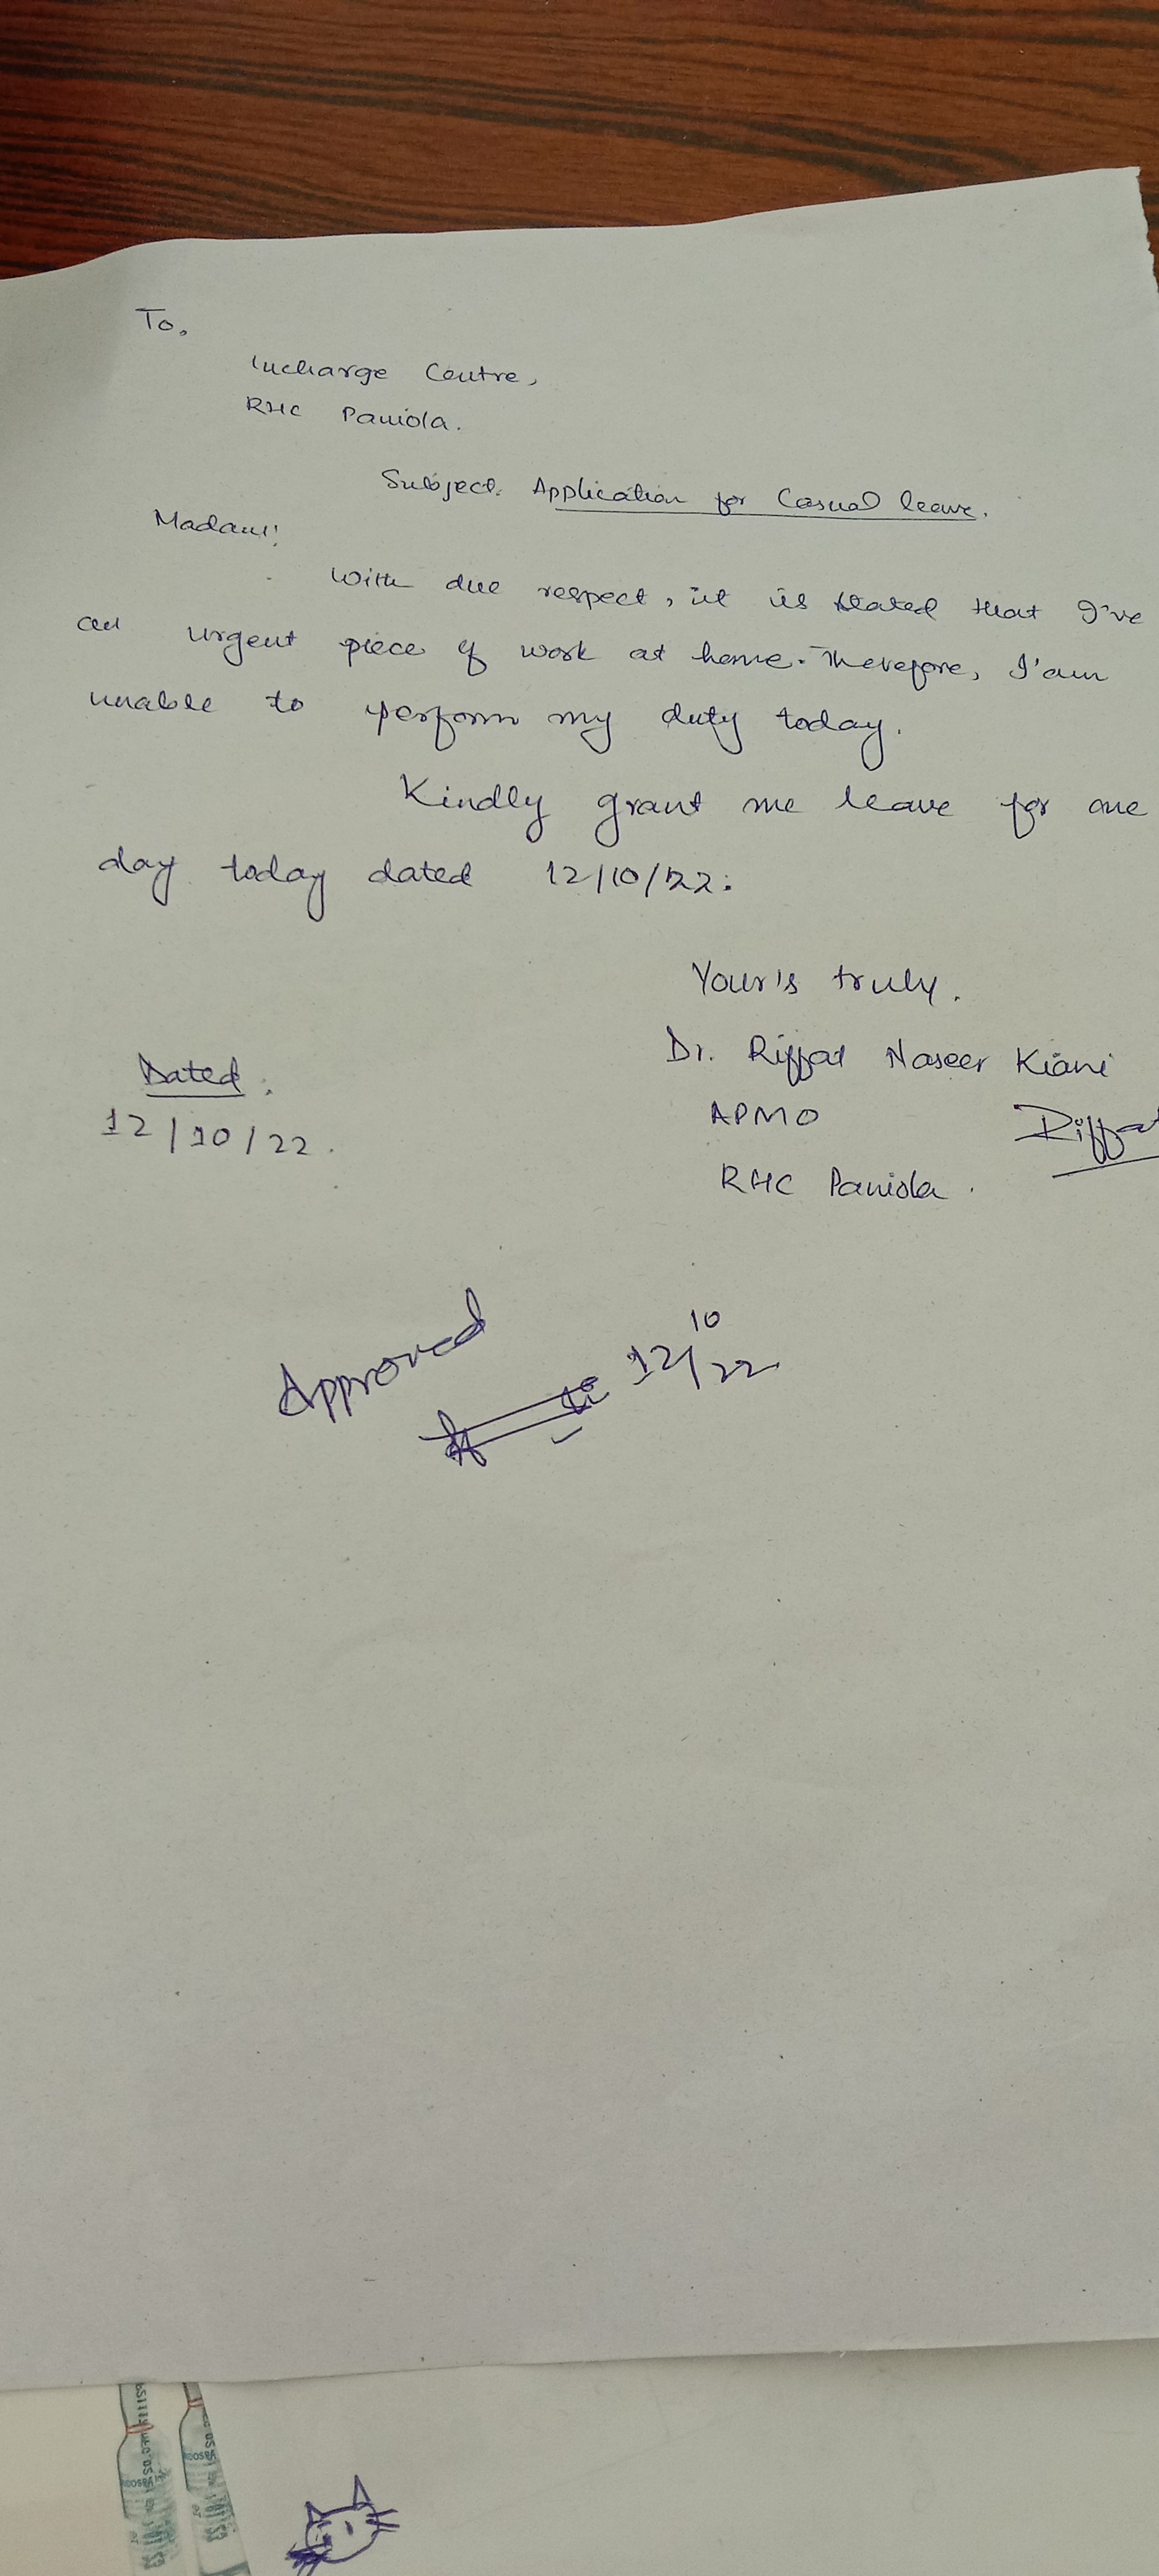 To,
Incharge Centre,
RHC Paniola.
Subject: Application for Casual leave.
Madam!
With due respect, it is stated that I've
an urgent piece of work at home. Therefore, I'am
unable to perform my duty today.
Kindly grant me leave for one
day today dated 12/10/22.
Your's truly.
Dr. Riffat Naseer Kiani
APMO
Riffat
RHC Paniola.
Dated:
12/10/22.
Approved
12/10/22